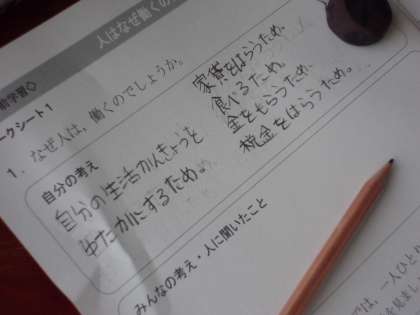 人はなぜ働くの
前学習◇
ークシート1
1．なぜ人は，働くのでしょうか。
自分の考え
自分の生活かんきょうを
ゆたかにするため。
家賃をはらうため。
食べるため。
金をもらうため。
税金をはらうため。
みんなの考え・人に聞いたこと
では，一人ひと